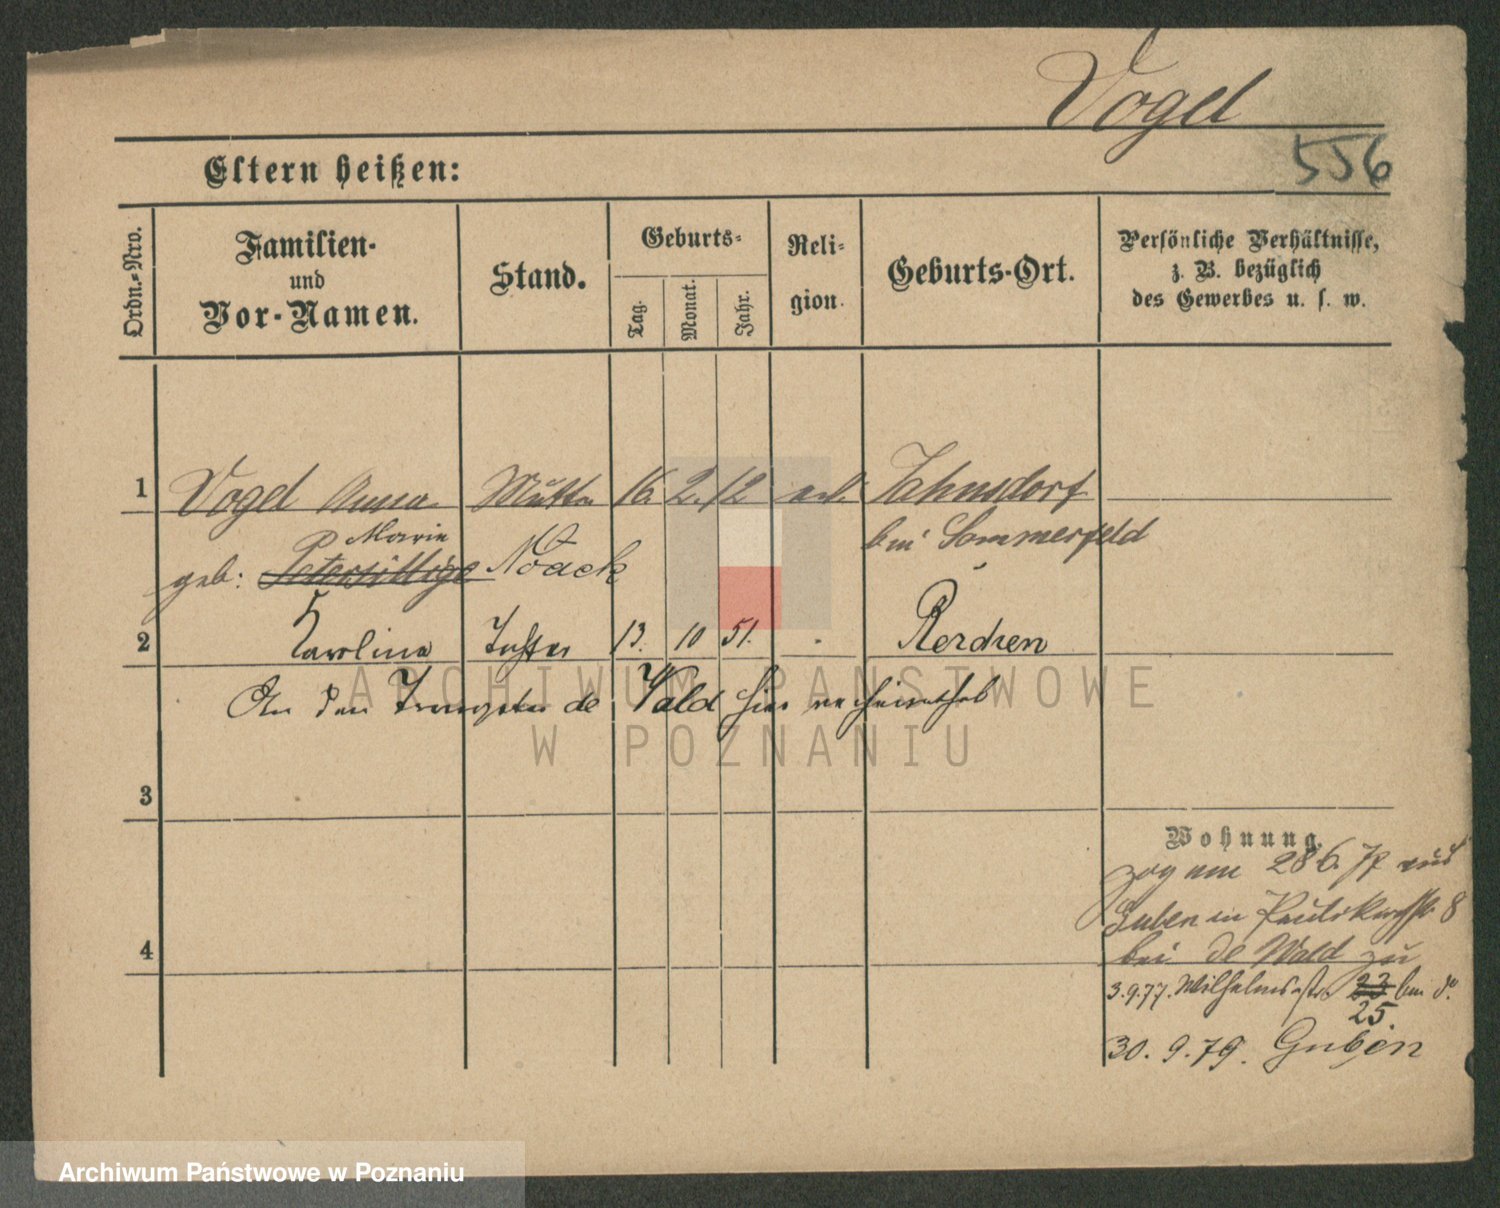 Vogel
556
Eltern heißen:
Ordn.-Nro.
Familien-
und
Vor-Namen.
Stand.
Geburts-
Tag.
Monat.
Jahr.
Reli-
gion.
Geburts-Ort.
Persönliche Verhältnisse,
z. B. bezüglich
des Gewerbes u. s. w.
1 Vogel Anna Mutter 16. 2. 12 Jahnsdorf
Marie bei Sommerfeld
geb: Petersillige Noack
2 Karolina Tochter 13. 10 51. Rerchen
An den de Wald hier verheirathet
ARCHIWUM PAŃSTWOWE
W POZNANIU
3
Wohnung.
zog am 28 6. 77 aus
Guben in Paulikirchstr 8
4 bei de Wald zu
3.9.77. Wilhelmsstr 23 bei d°
25.
30. 9. 79. Guben
Archiwum Państwowe w Poznaniu